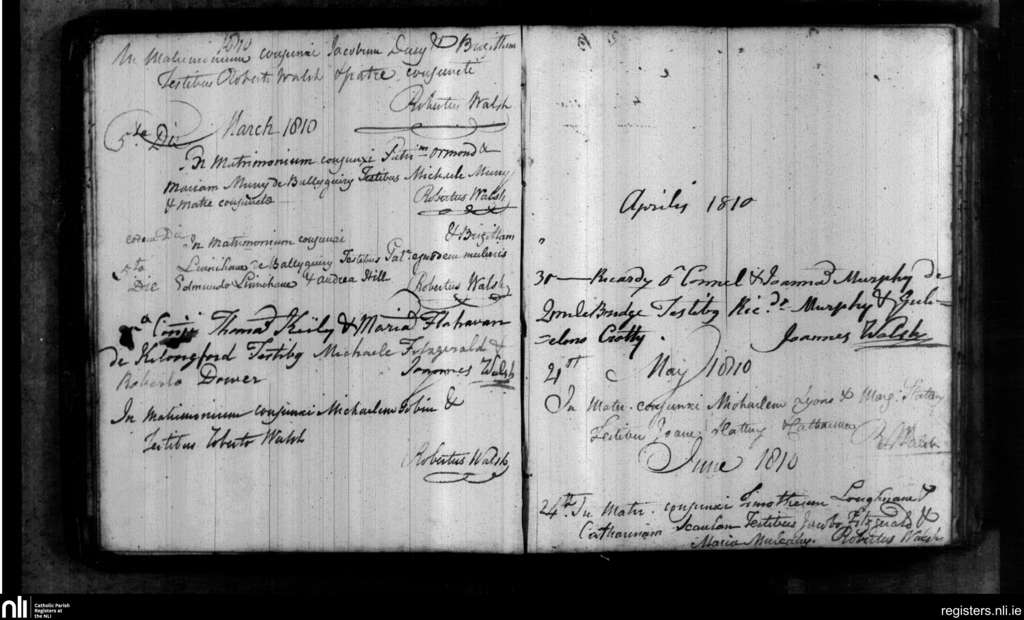 1810
In Matrimonium conjunxi Jacobum Ducy & Brigitham
Testibus Roberti Walsh & patre conjuncti
Robertus Walsh
March 1810
5ta Die
In Matrimonium conjunxi Patrm Ormond &
Mariam Muny de Ballyguiry Testibus Michaele Muny
& Matre conjuncta
Robertus Walsh
eodem Die In Matrimonium conjunxi & Brigitham
Linnihane de Ballyguiry Testibus Patre ejusdem mulieris
5ta Die Edmundo Linnehane & andrea Hill
Robertus Walsh
Thomas Kiely & Maria Flahavan
de Kilongford Testibus Michaele Fitzgerald &
Roberto Dower Joannes Walsh
In Matrimonium conjunxi Michaelem Tobin &
Testibus Roberto Walsh
Robertus Walsh
Aprilis 1810
30 — Ricardus O Connel & Joanna Murphy de
Bridge Testibus Ric.do Murphy &
Crotty. Joannes Walsh
May 1810
21st
In Matr. conjunxi Michaelem Lyons & Marg. Slattery
Testibus Joanes Slattery & Catharina
Rt Walsh
June 1810
24th In Matr. conjunxi Timotheum Loughnane &
Catharinam Scanlan Testibus Jacobo Fitzgerald &
Maria Mulcahy. Robertus Walsh
nli
Catholic Parish
Registers at
the NLI
registers.nli.ie